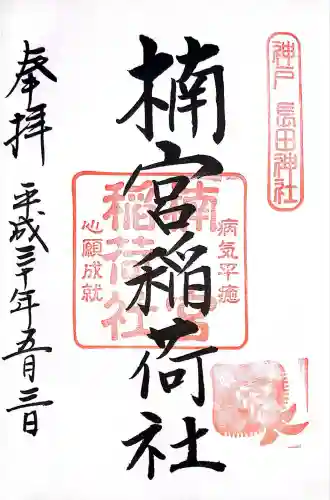 神戸 長田神社
楠宮稲荷社
楠宮
稲荷社
病気平癒
心願成就
奉拝
平成三十年五月三日